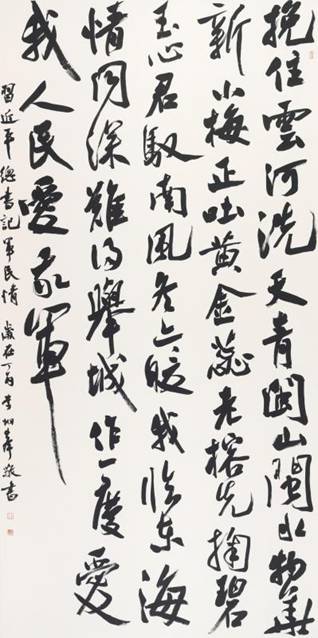 挽住雲河洗天青閩山閩水物華
新小梅正吐黄金蕊老榕先掬碧
玉心君馭南風冬亦暖我臨東海
情同深難得舉城作一慶愛
我人民愛我軍
習近平總書記軍民情 歲在丁酉 敬書